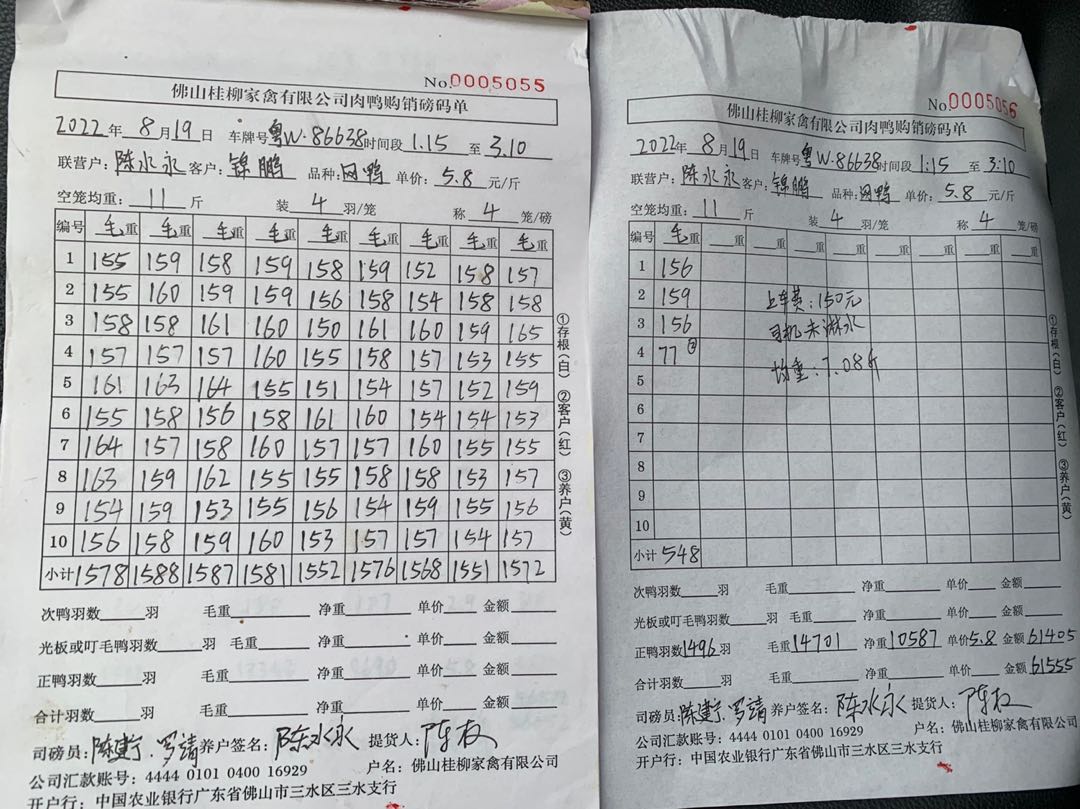 No.0005055
佛山桂柳家禽有限公司肉鸭购销磅码单
2022年 8月19日 车牌号粤W·86638时间段 1.15 至 3.10
联营户:陈水永 客户:锦鹏 品种:网鸭 单价:5.8 元/斤
空笼均重:11斤 装 4 羽/笼 称 4 笼/磅
编号 毛重 毛重 毛重 毛重 毛重 毛重 毛重 毛重 毛重
1 155 159 158 159 158 159 152 158 157
2 155 160 159 159 156 158 154 158 158
3 158 158 161 160 150 161 160 159 165
4 157 157 157 160 155 158 157 153 155
5 161 163 164 155 151 154 157 152 159
6 155 158 156 158 161 160 154 154 153
7 164 157 158 160 157 157 160 155 155
8 163 159 162 155 155 158 158 153 157
9 154 159 153 155 156 154 159 155 156
10 156 158 159 160 153 157 157 154 157
小计 1578 1588 1587 1581 1552 1576 1568 1551 1572
①存根(白) ②客户(红) ③养户(黄)
次鸭羽数 羽 毛重 净重 单价 金额
光板或叮毛鸭羽数 羽 毛重 净重 单价 金额
正鸭羽数 羽 毛重 净重 单价 金额
合计羽数 羽 毛重 净重 单价 金额
司磅员:陈建宁·罗靖 养户签名:陈水永 提货人:陈权
公司汇款账号:4444 0101 0400 16929 户名:佛山桂柳家禽有限公司
开户行:中国农业银行广东省佛山市三水区三水支行
No.0005056
佛山桂柳家禽有限公司肉鸭购销磅码单
2022年 8月19日 车牌号粤W·86638时间段 1:15 至 3:10
联营户:陈水永 客户:锦鹏 品种:网鸭 单价:5.8 元/斤
空笼均重:11斤 装 4 羽/笼 称 4 笼/磅
编号 毛重 重 重 重 重 重 重 重 重
1 156
2 159 上车费:150元
3 156 司机未淋水
4 77 均重:7.08斤
5
6
7
8
9
10
小计 548
①存根(白) ②客户(红) ③养户(黄)
次鸭羽数 羽 毛重 净重 单价 金额
光板或叮毛鸭羽数 羽 毛重 净重 单价 金额
正鸭羽数1496羽 毛重14701 净重10587 单价5.8 金额61405
合计羽数 羽 毛重 净重 单价 金额61555
司磅员:陈建宁·罗靖 养户签名:陈水永 提货人:陈权
户名:佛山桂柳家禽有限公司
公司汇款账号:4444 0101 0400 16929
开户行:中国农业银行广东省佛山市三水区三水支行